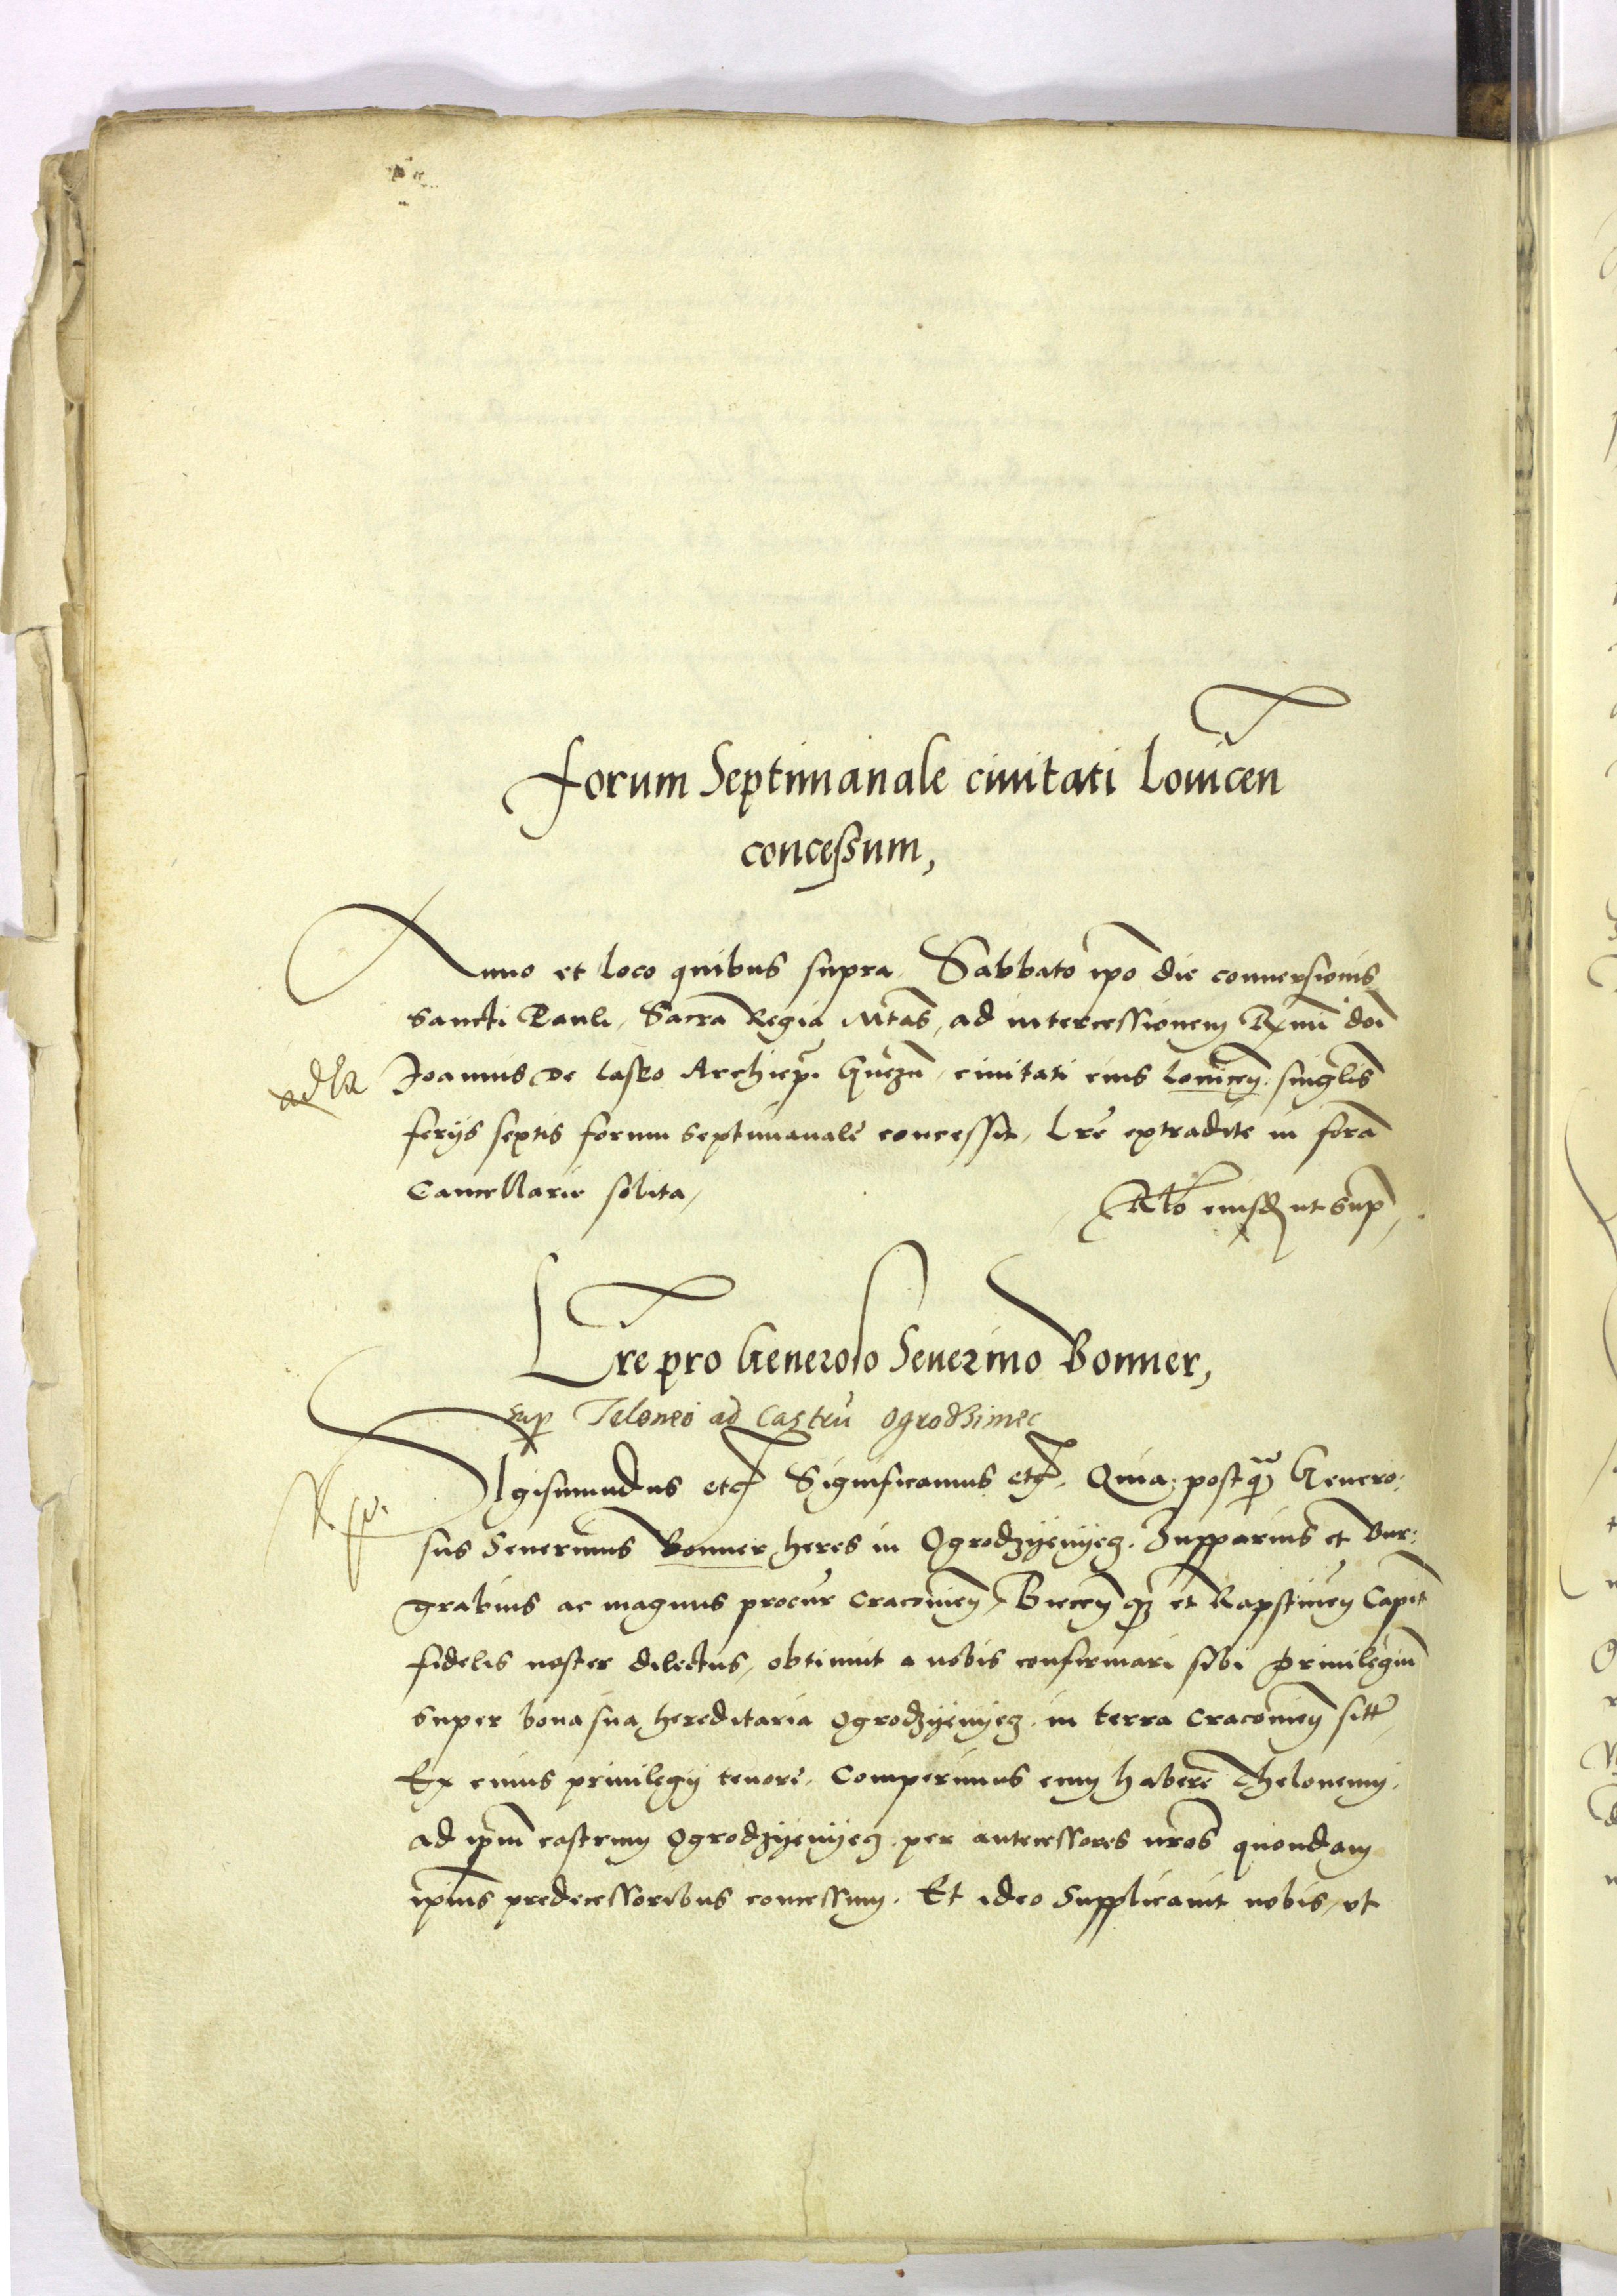 Forum Septimanale ciuitati Louicen
concessum,
Anno et loco quibus supra Sabbato ipo die conuersionis
Sancti Pauli, Sacra Regia Mtas, ad intercessionem Rmi doi
Joannis de Lasko Archiepi Gnezn, ciuitati eius Louicen singlis
ferijs septis forum septimanale concessit, Lre extradite in fora
Cancellarie solita,
Rlo eiusd ut supra,
Lre pro Generoso Seuerino Bonner,
sup Teloneo ad Castru Ogrodzimec
Sigismundus etc Significamus etc. Quia postqua Genero:
sus Seuerinus Bonner heres in Ogrodzyenyecz. Zupparius et Bur:
grabius ac magnus procur Cracouien, Biecen q et Rapstinen Capit
fidelis noster dilectus, obtinuit a nobis confirmari sibi priuilegiu
super bona sua hereditaria Ogrodzyenyecz. in terra Cracouien sitt
Ex cuius priuilegij tenore. Comperimus eum habere Theloneum.
ad ipm castrum Ogrodzyenyecz per antecessores nros quondam
ipius predecessoribus concessum. Et ideo Supplicauit nobis, vt